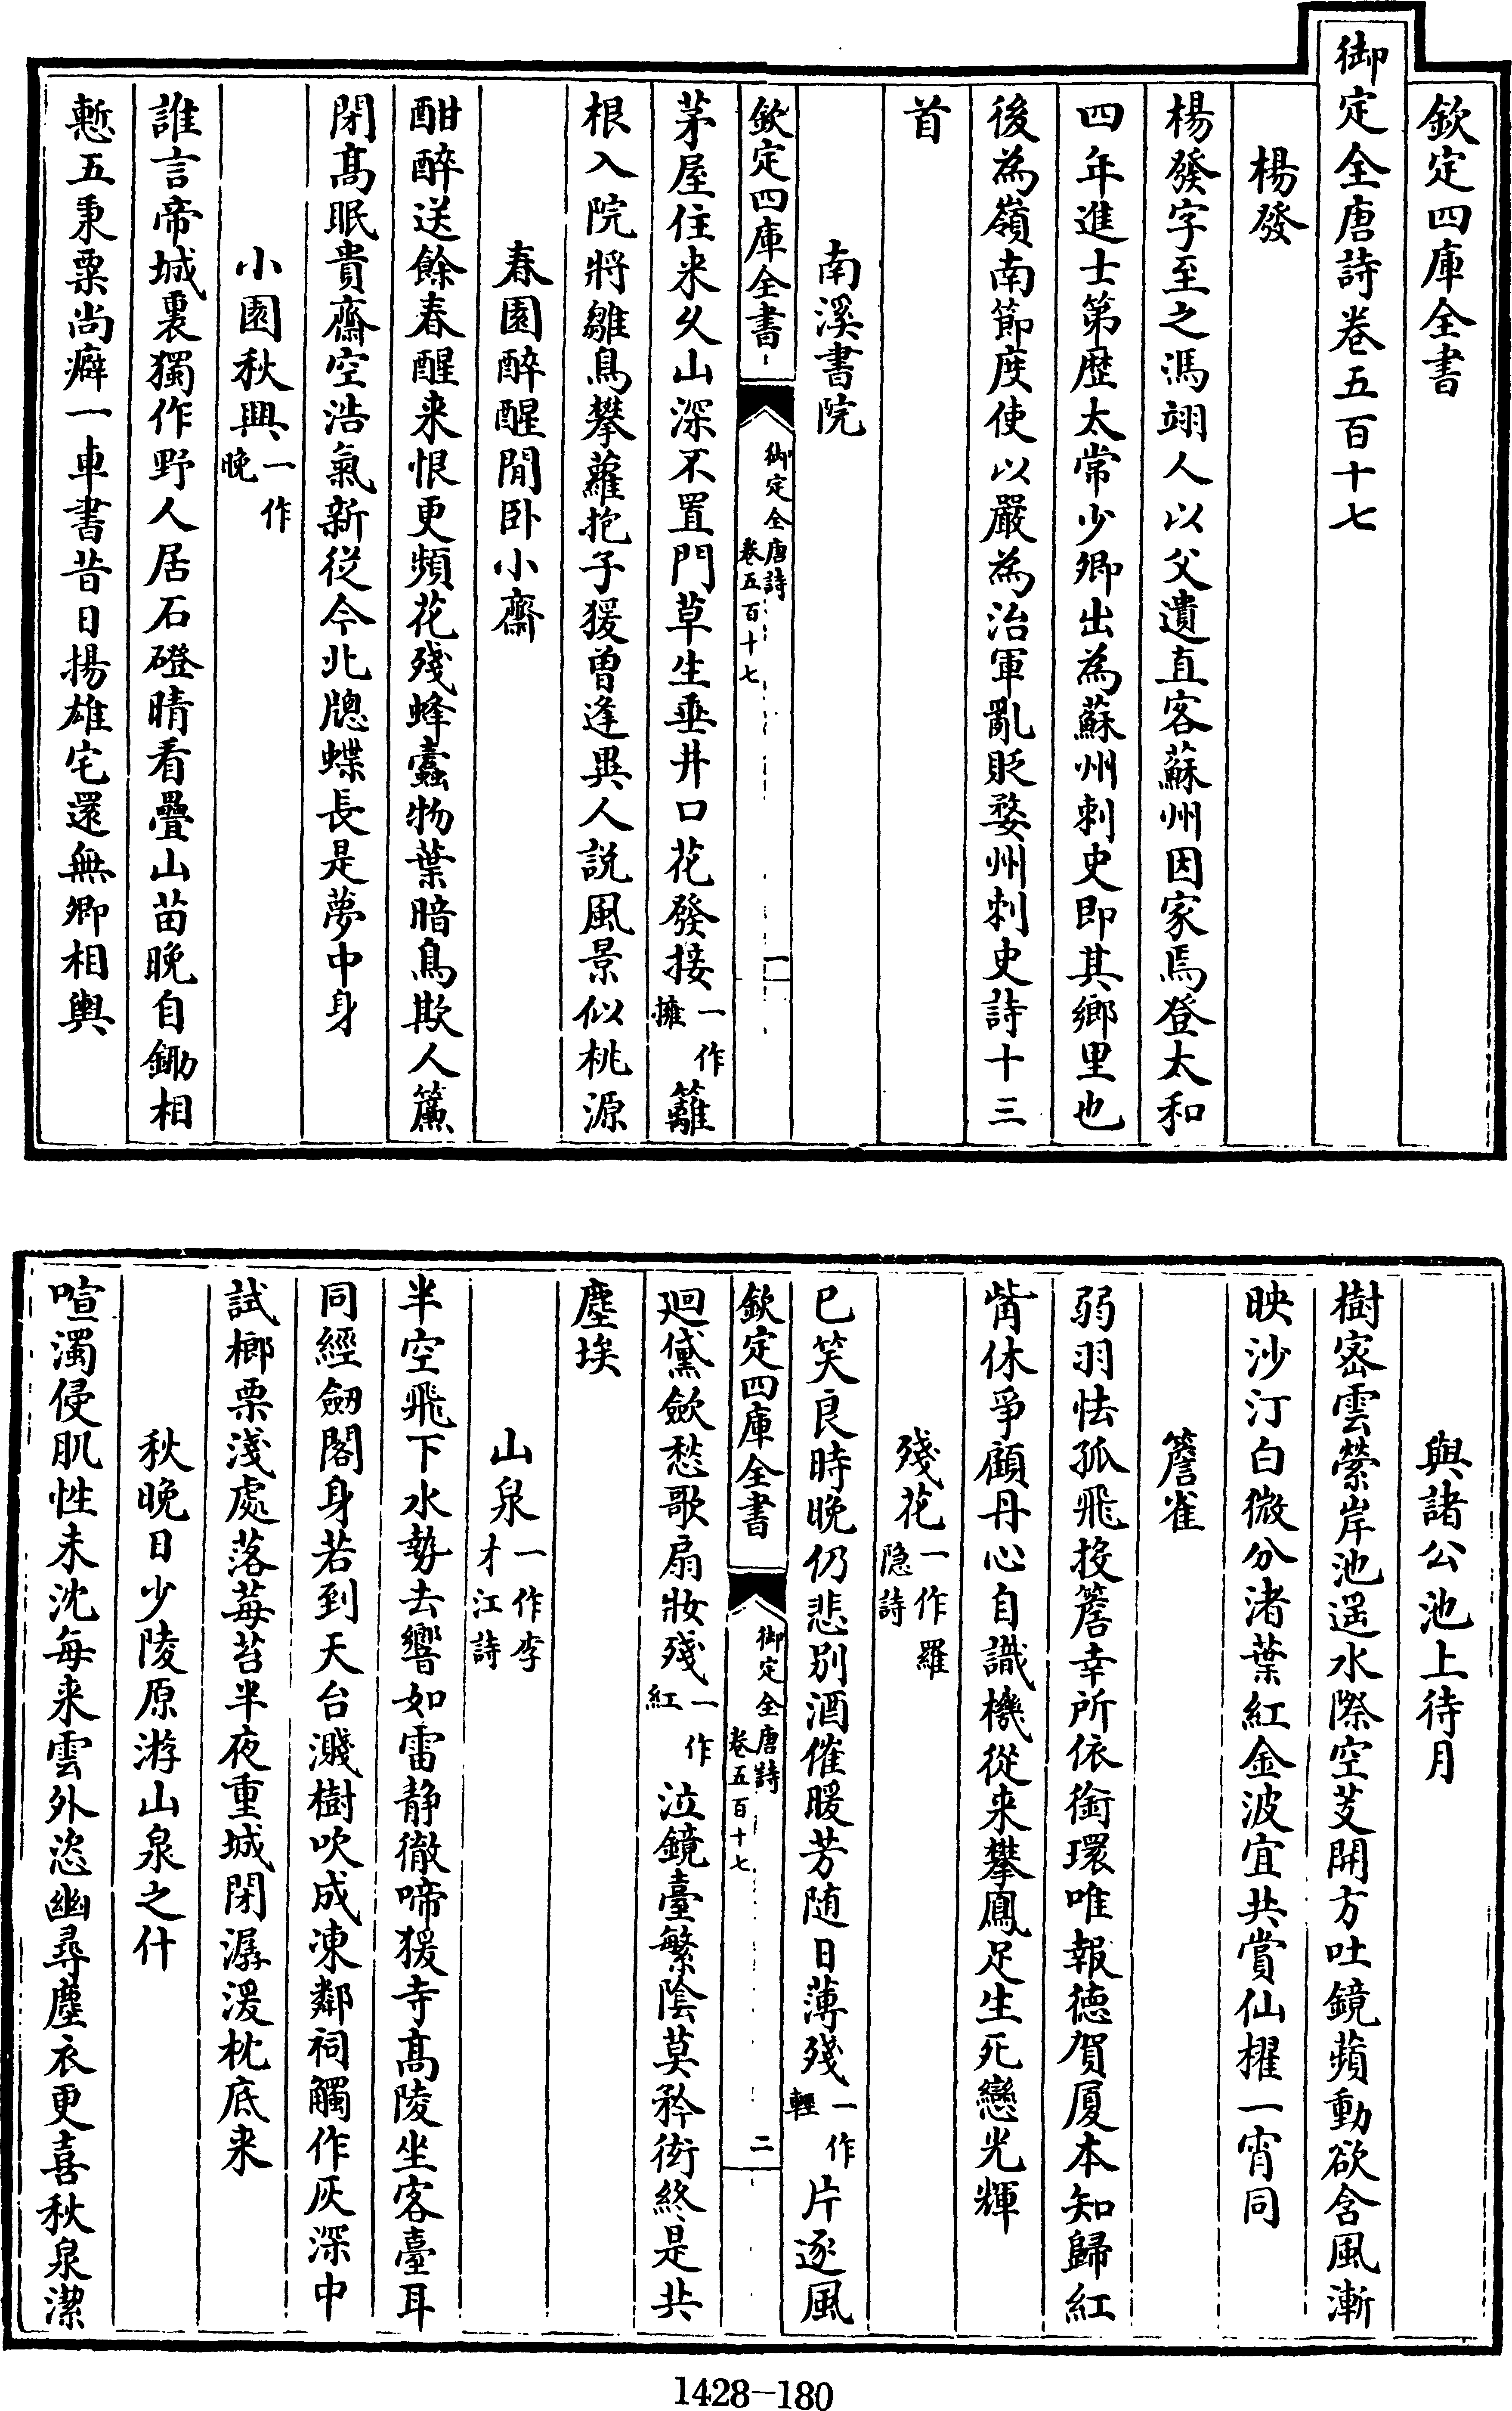 欽定四庫全書
御定全唐詩卷五百十七
楊發
楊發字至之馮翊人以父遺直客蘇州因家焉登太和
四年進士第歴太常少卿出為蘇州刺史即其鄉里也
後為嶺南節度使以嚴為治軍亂貶婺州刺史詩十三
首
南溪書院
欽定四庫全書
御定全唐詩
卷五百十七
一
茅屋住来久山深不置門草生垂井口花發接一作擁籬
根入院將雛鳥攀蘿抱子猨曾逢異人説風景似桃源
春園醉醒閒卧小齋
酣醉送餘春醒来恨更頻花殘蜂蠧物葉暗鳥欺人簾
閉髙眠貴齋空浩氣新從今北牕蝶長是夢中身
小園秋興一作晚
誰言帝城裏獨作野人居石磴晴看疊山苗晚自鋤相
慙五秉粟尚癖一車書昔日揚雄宅還無卿相輿
與諸公池上待月
樹密雲縈岸池遥水際空芰開方吐鏡蘋動欲含風漸
映沙汀白微分渚葉紅金波宜共賞仙櫂一宵同
簷雀
弱羽怯孤飛投簷幸所依銜環唯報徳賀厦本知歸紅
觜休爭顧丹心自識機從来攀鳳足生死戀光輝
殘花一作羅隐詩
已笑良時晚仍悲别酒催暖芳随日薄殘一作輕片逐風
欽定四庫全書
御定全唐詩
卷五百十七
二
廻黛歛愁歌扇妝殘一作紅泣鏡臺繁陰莫矜衒終是共
塵埃
山泉一作李才江詩
半空飛下水勢去響如雷静徹啼猨寺髙陵坐客臺耳
同經劒閣身若到天台濺樹吹成凍鄰祠觸作灰深中
試榔栗淺處落莓苔半夜重城閉潺湲枕底来
秋晚日少陵原游山泉之什
喧濁侵肌性未沈每来雲外恣幽尋塵衣更喜秋泉潔
1428-180